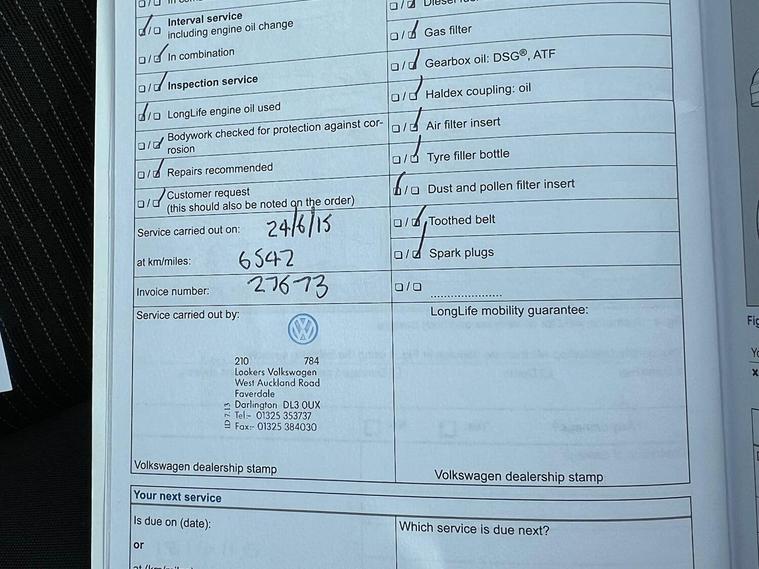 Interval service
including engine oil change
In combination
Inspection service
LongLife engine oil used
Bodywork checked for protection against cor-
rosion
Repairs recommended
Customer request
(this should also be noted on the order)
Service carried out on: 24/6/15
at km/miles: 6542
Invoice number: 27673
Service carried out by:
210 784
Lookers Volkswagen
West Auckland Road
Faverdale
Darlington DL3 0UX
Tel:- 01325 353737
Fax:- 01325 384030
Volkswagen dealership stamp
Gas filter
Gearbox oil: DSG®, ATF
Haldex coupling: oil
Air filter insert
Tyre filler bottle
Dust and pollen filter insert
Toothed belt
Spark plugs
LongLife mobility guarantee:
Volkswagen dealership stamp
Your next service
Is due on (date):
or
Which service is due next?